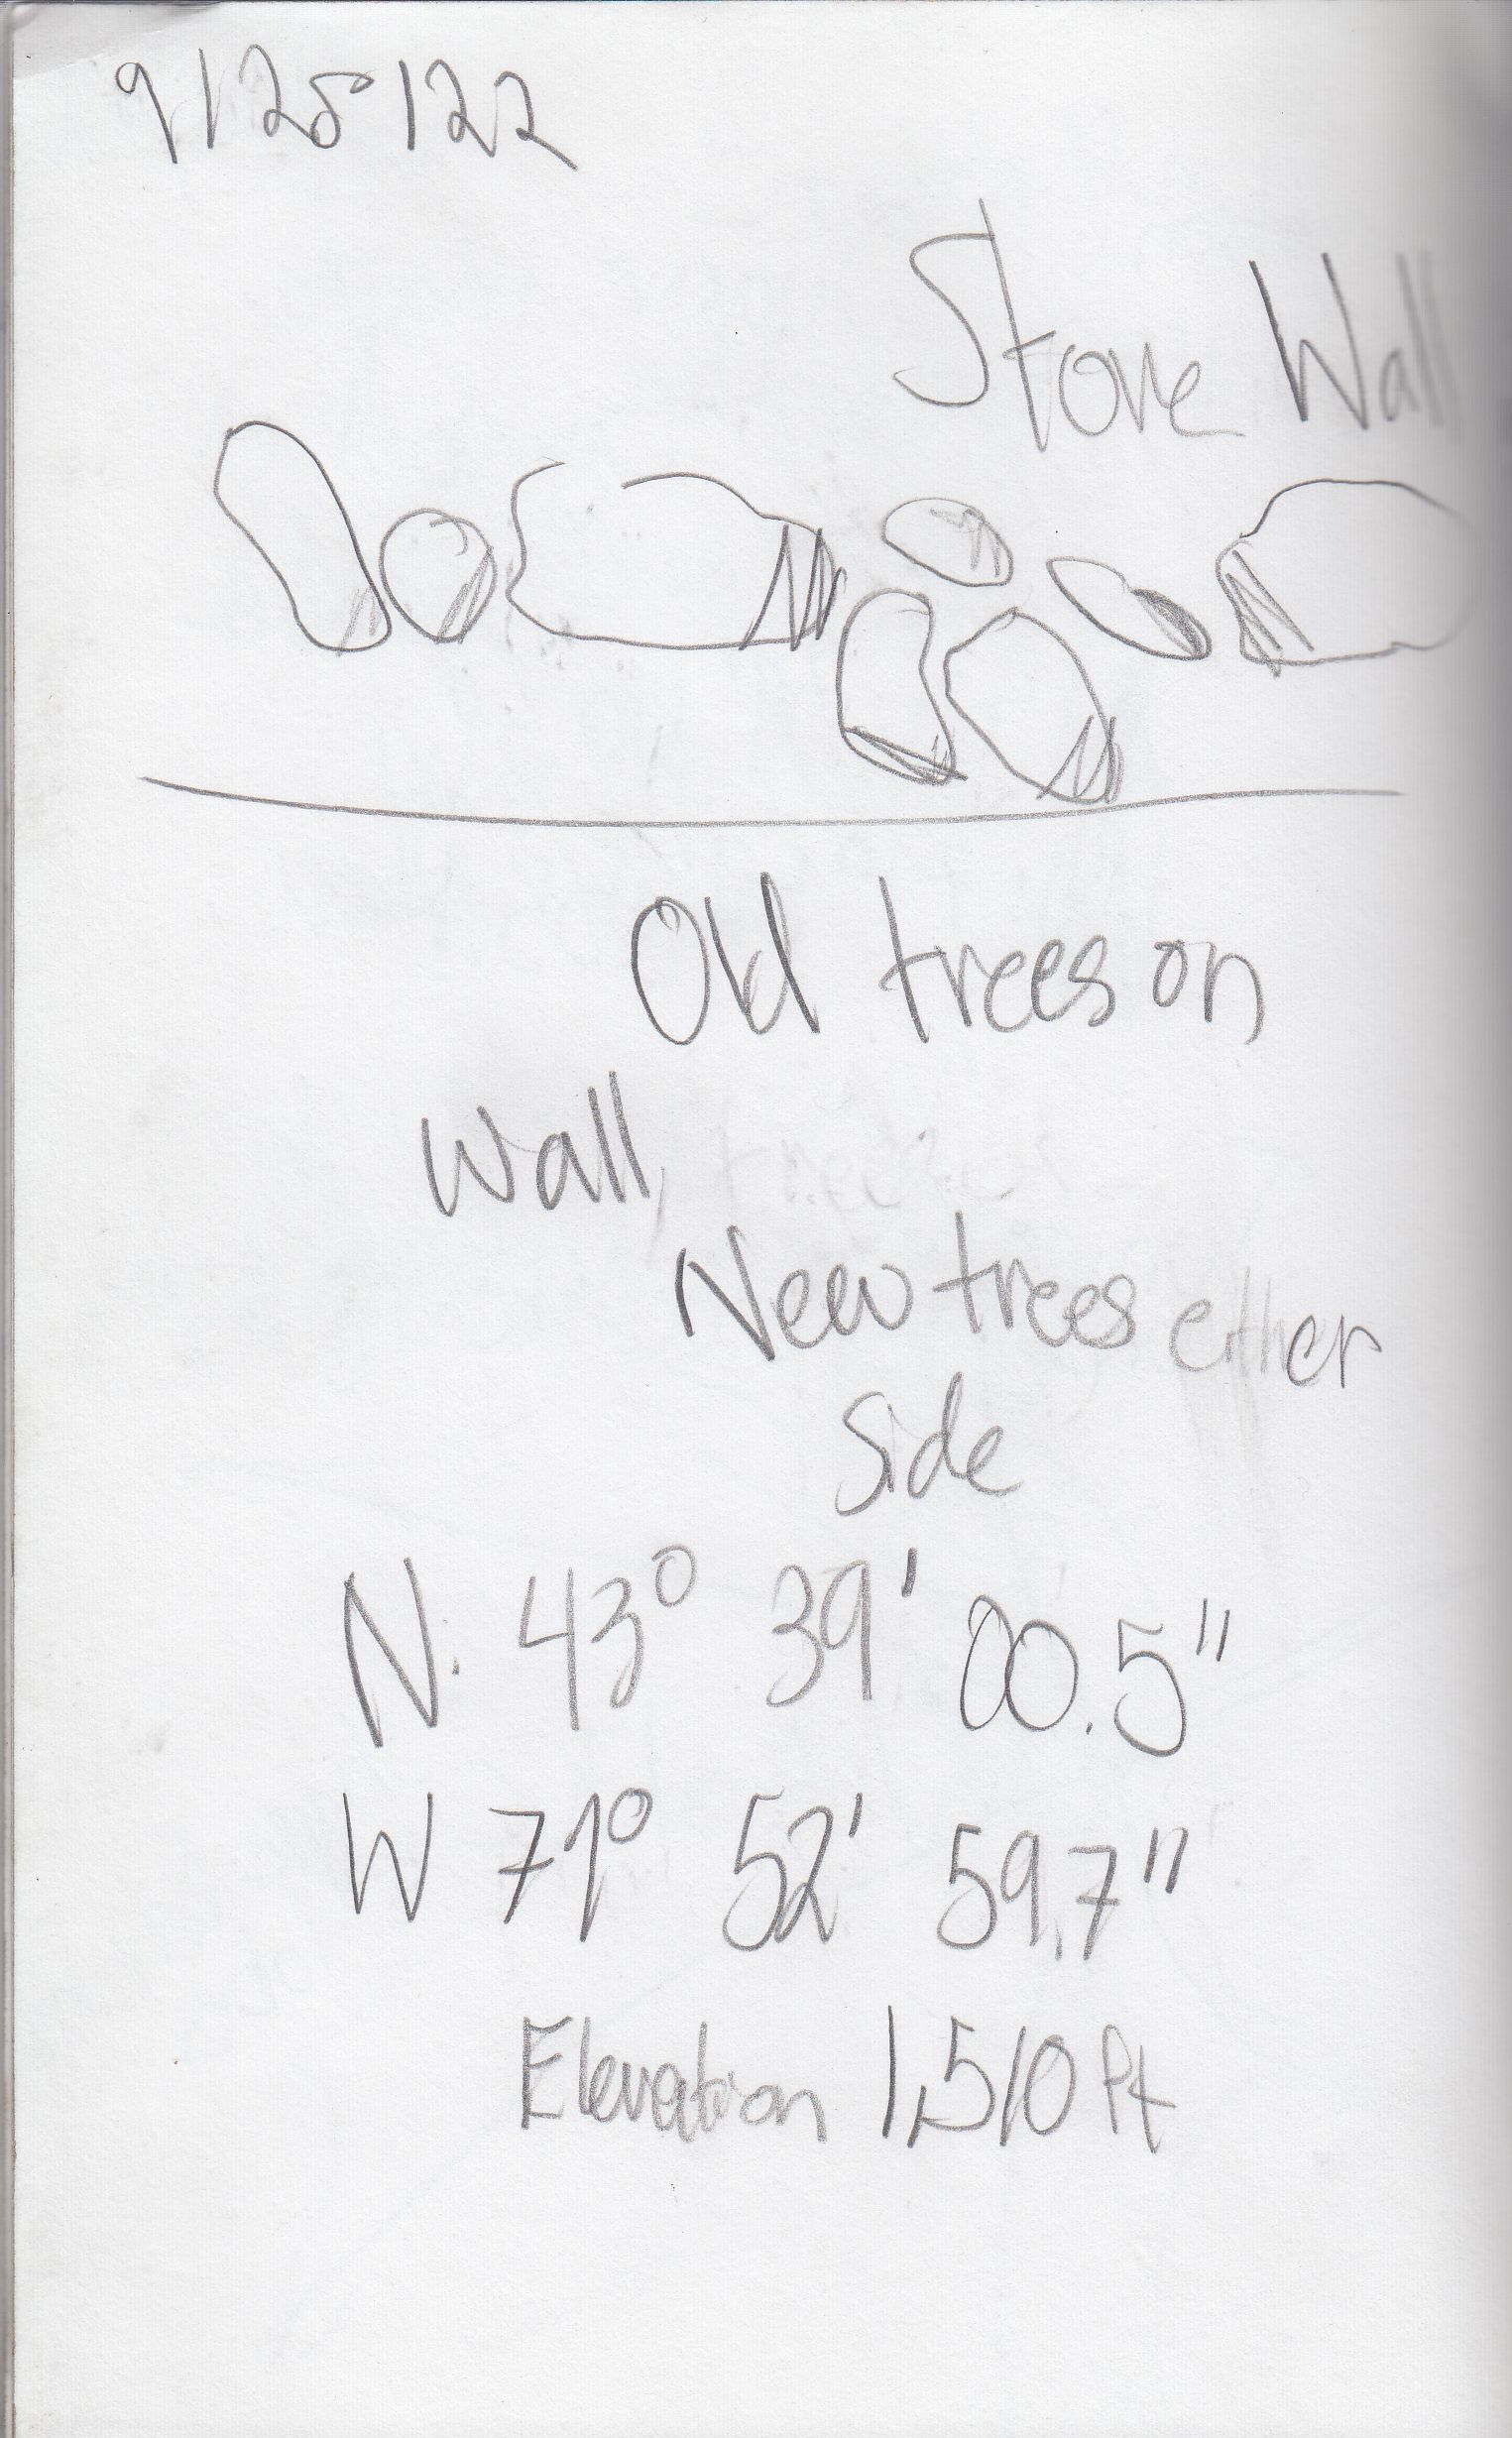 9/25/22
Stone Wall
Old trees on
Wall,
New trees either
Side
N. 43° 39' 00.5"
W 71° 52' 59.7"
Elevation 1,510 ft